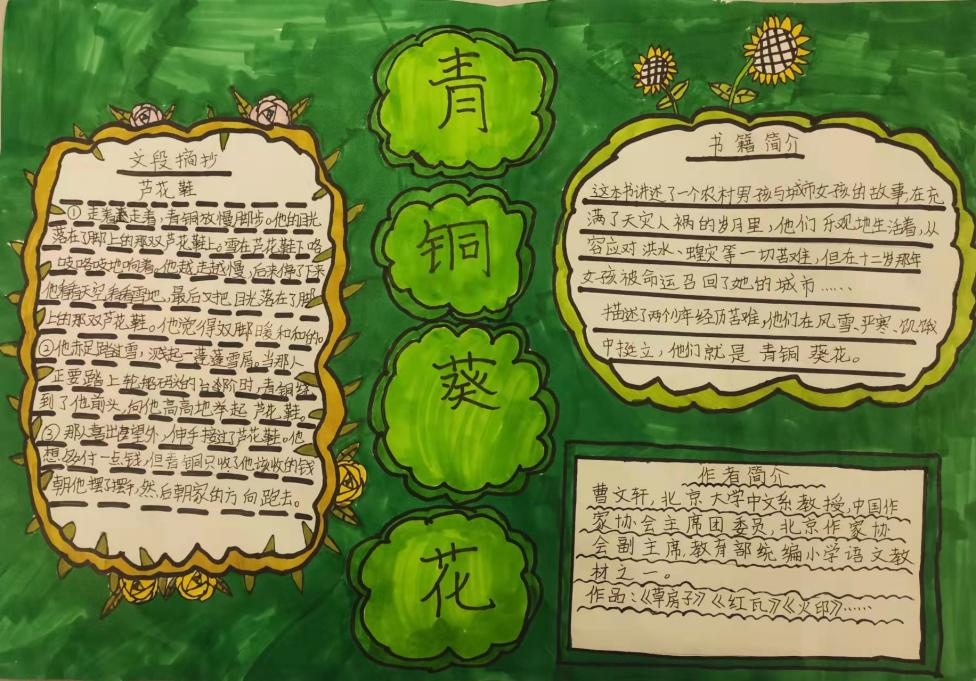 文段摘抄
芦花鞋
①走着走着，青铜放慢脚步。他的目光
落在了脚上的那双芦花鞋上。雪在芦花鞋下咯
吱咯吱地响着，他越走越慢，后来停了下来
他看看天空看看雪地，最后又把目光落在了脚
上的那双芦花鞋。他觉得双脚暖和和的。
②他赤足踏过雪，溅起一蓬蓬雪屑。当那人
正要踏上轮船码头的台阶时，青铜绕
到了他前头，向他高高地举起芦花鞋。
③那人喜出望外，伸手接过了芦花鞋。他
想多付一点钱，但青铜只收了他该收的钱
朝他摆了摆手，然后朝家的方向跑去。
青
铜
葵
花
书籍简介
这本书讲述了一个农村男孩与城市女孩的故事，在充
满了天灾人祸的岁月里，他们乐观地生活着，从
容应对洪水、蝗灾等一切苦难，但在十二岁那年
女孩被命运召回了她的城市……
描述了两个少年经历苦难，他们在风雪、严寒、饥饿
中挺立，他们就是青铜葵花。
作者简介
曹文轩，北京大学中文系教授，中国作
家协会主席团委员，北京作家协
会副主席，教育部统编小学语文教
材之一。
作品：《草房子》《红瓦》《火印》……